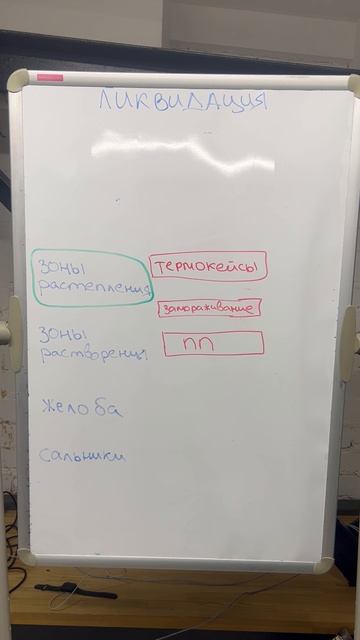 ЛИКВИДАЦИЯ
зоны
растепления
термокейсы
замораживание
зоны
растворения
ПП
желоба
сальники